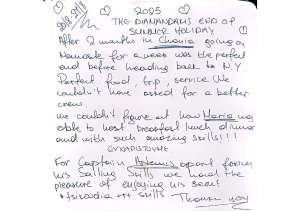 2025
THE DIAMANDAKIS END OF
SUMMER HOLIDAY
After 2 months in Chania going on
for a week was the perfect
end before heading back to N.Y
Perfect food, trip, service. We
couldn't have asked for a better
crew
We couldn't figure out how Maria was
able to host breakfast lunch dinner
and with such amazing skills!!!
ΕΥΧΑΡΙΣΤΟΥΜΕ
For Captain Artemis apart from
his Sailing Skills we had the
pleasure of enjoying his
+ skills Thank you